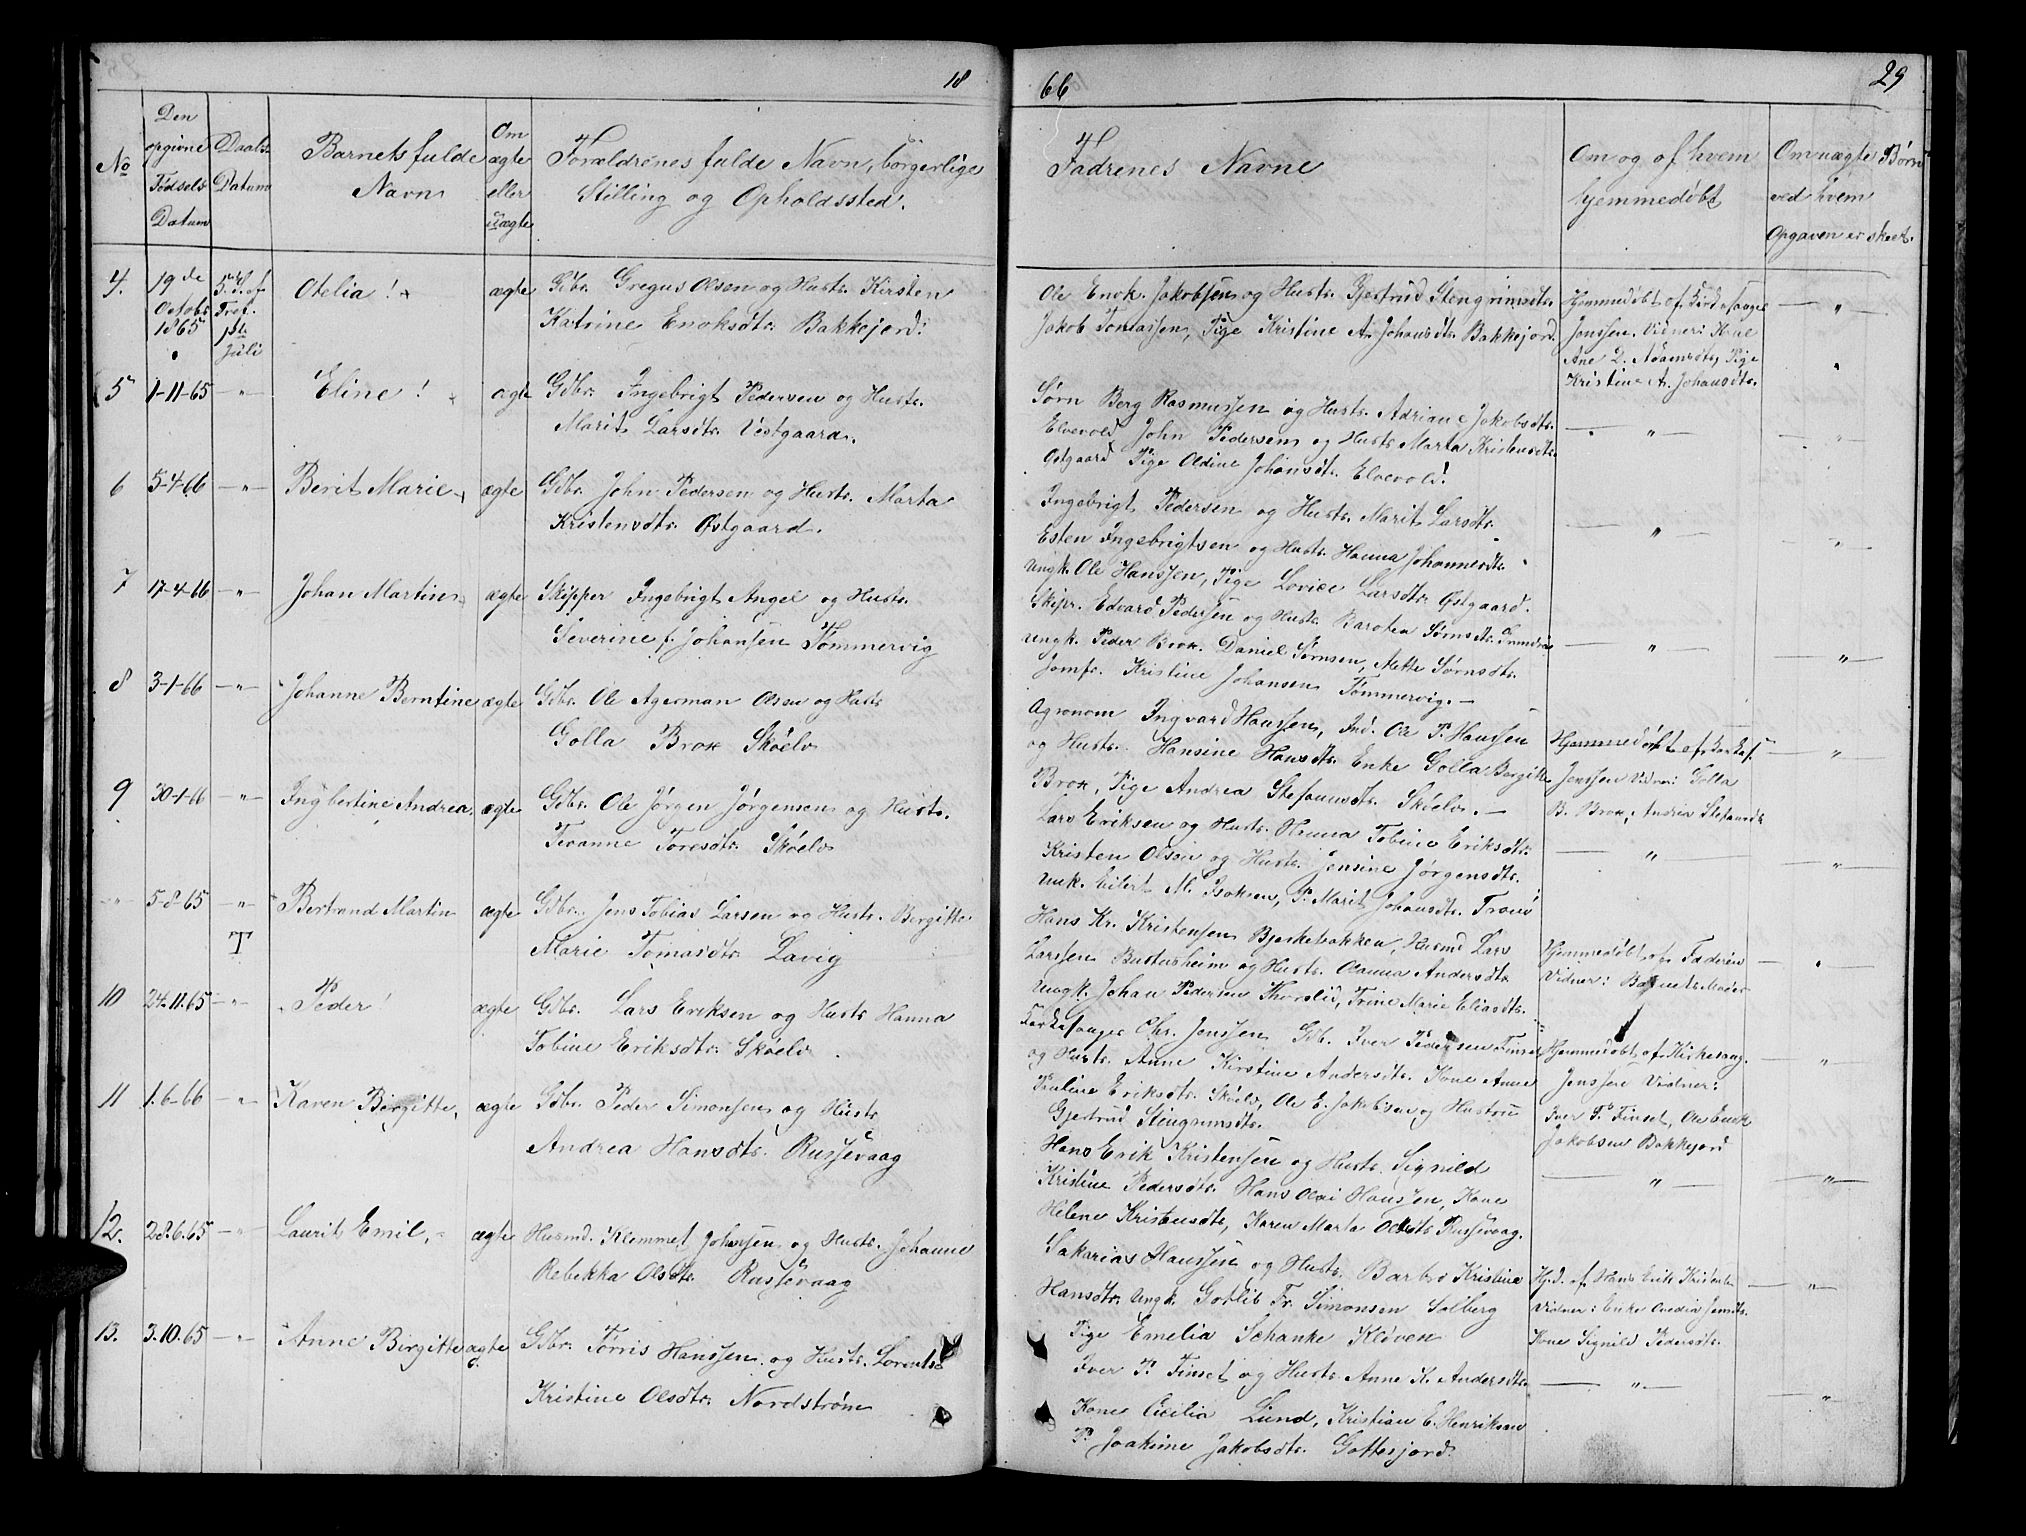 18
66
29
No
Den opgivne Fødsels Datum
Daabs Datum
Barnets fulde Navn
Om ægte eller uægte
Forældrenes fulde Navn, borgerlige Stilling og Opholdssted.
Fadrenes Navne
Om og af hvem hjemmedøbt
Om uægte Børn ved hvem Opgaven er skeet.
4. 19de Octobr 1865 5. S. ef. Tref. 1ste Juli Otelia! ægte Gdbr. Gregus Olsen og Hustr. Kirsten
Katrine Enoksdtr. Bakkejord.
Ole Enok. Jakobsen og Hustr. Gjertrud Stengrimsdtr.
Jakob Tomassen, Pige Kristine A. Johansdtr. Bakkejord.
Hjemmedøbt af Kirkesanger
Jenssen. Vidner: Kone
Ane L. Adamsdtr, Pige
Kristine A. Johansdtr.
5 1-11-65 -"- Eline! ægte Gdbr. Ingebrigt Pedersen og Hustr.
Marit Larsdtr. Vestgaard.
Sørn Berg Rasmussen og Hustr. Adriane Jakobsdtr.
Elvevold, John Pedersen og Hustr Marta Kristensdtr.
Østgaard Pige Oldine Johansdtr. Elvevold!
6 5-4-66 -"- Berit Marie ægte Gdbr. John Pedersen og Hustr. Marta
Kristensdtr. Østgaard.
Ingebrigt Pedersen og Hustr. Marit Larsdtr.
Esten Ingebrigtsen og Hustr. Hanna Johannesdtr.
Ungk. Ole Hanssen, Pige Lovice Larsdtr. Østgaard.
7 17-4-66 -"- Johan Martin ægte Skipper Ingebrigt Angel og Hustr.
Severine f. Johansen Tømmervig
Skipr. Edvard Pedersen og Hustr. Barotea Sørnsdtr.
Ungk. Peder Brox. Daniel Sørnsen, Mette Sørnsdtr.
Jomfr. Kristine Johansen Tømmervig.
8 3-1-66 -"- Johanne Berntine ægte Gdbr. Ole Agerman Olsen og Hustr
Golla Brox Skøelv
Agronom Ingvard Hanssen, Ind. Ole P. Hanssen
og Hustr. Hansine Hansdtr. Enke Golla Bergitte
Brox, Pige Andrea Stefansdtr. Skøelv.
Hjemmedøbt af Kirkes.
Jenssen Vidner: Golla
B. Brox, Andrea Stefansdtr
9 30-1-66 -"- Ingbertine Andrea. ægte Gdbr. Ole Jørgen Jørgensen og Hustr.
Tevanne Toresdtr. Skøelv
Lars Eriksen og Hustr. Hanna Tobine Eriksdtr.
Kristen Olsen og Hustr. Jensine Jørgensdtr.
Unk. Eilert M. Isaksen, P. Marit Johansdtr.
" 5-8-65 -"- T Bertrand Martin ægte Gdbr. Jens Tobias Larsen og Hustr. Bergitte
Marie Tomasdtr. Lavig
Hans Kr. Kristensen Bjerkebakken, Husmd Lars
Larssen Bustersheim og Hustr. Olianna Andersdtr.
Ungk. Johan Pedersen Thorslid, Trine Marie Eliasdtr.
Hjemmedøbt af Faderen
Vidner: Barnets Moder
10 24.11.65 -"- Peder! ægte Gdbr. Lars Eriksen og Hustr Hanna
Tobine Eriksdtr. Skøelv.
Kirkesanger Chr. Jenssen Gdb. Iver Pedersen Finset
og Hustr. Anne Kirstine Andersdtr. Kone Anne
Pauline Eriksdtr. Skøelv, Ole E. Jakobsen og Hustru
Gjertrud Stingrimsdtr.
Hjemmedøbt af Kirkesang.
Jenssen Vidner:
Iver P. Finset, Ole Enok
Jakobsen Bakkejord
11 1.6-66 -"- Karen Birgitte, ægte Gdbr. Peder Simonsen og Hustr
Andrea Hansdtr. Russevaag
Hans Erik Kristensen og Hustr. Signild
Kristine Pedersdtr. Hans Olai Hanssen, Kone
Helene Kristensdtr, Karen Marta Olsdtr Russevaag.
12. 28.6.65 -"- Laurits Emil, ægte Husmd. Klemmet Johansen og Hustr. Johanne
Rebekka Olsdtr. Russevaag
Sakarias Hanssen og Hustr. Barbro Kristine
Hansdtr. Ungk. Gotlib Fr. Simonsen Solberg
Pige Emelia Schanke Kløven
Hj.d. af Hans Erik Kristens.
Vidner: Enke
Kone Signild Pedersdtr.
13. 3.10.65 -"- Anne Birgitte ægte Gdbr. Torris Hanssen og Hustr. Lorentse
Kristine Olsdtr. Nordstrøm
Iver P. Finset og Hustr. Anne K. Andersdtr.
Kone Cicilia Lund, Kristian E. Henriksen
P. Joakime Jakobsdtr. Gottesjord.